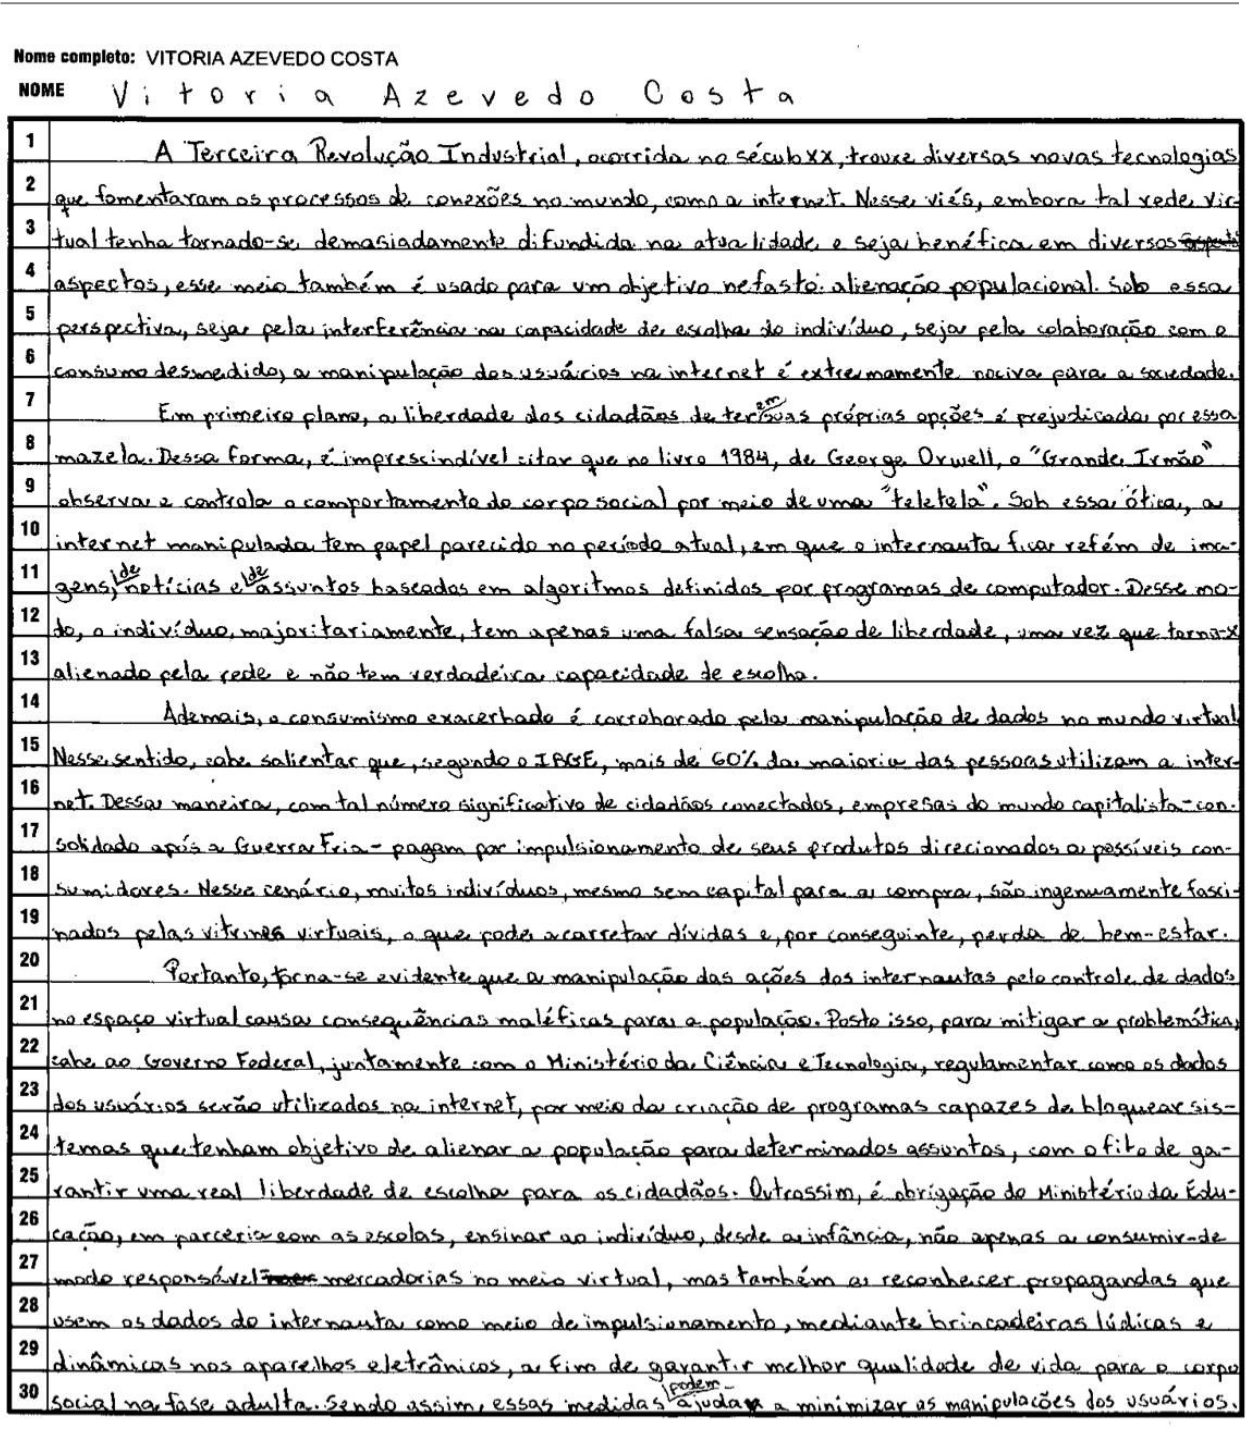 Nome completo: VITORIA AZEVEDO COSTA
NOME Vitoria Azevedo Costa
1 A Terceira Revolução Industrial, ocorrida no século XX, trouxe diversas novas tecnologias
2 que fomentaram os processos de conexões no mundo, como a internet. Nesse viés, embora tal rede vir-
3 tual tenha tornado-se demasiadamente difundida na atualidade e seja benéfica em diversos
4 aspectos, esse meio também é usado para um objetivo nefasto: alienação populacional. Sob essa
5 perspectiva, seja pela interferência na capacidade de escolha do indivíduo, seja pela colaboração com o
6 consumo desmedido, a manipulação dos usuários na internet é extremamente nociva para a sociedade.
7 Em primeiro plano, a liberdade dos cidadãos de terem suas próprias opções é prejudicada por essa
8 mazela. Dessa forma, é imprescindível citar que no livro 1984, de George Orwell, o "Grande Irmão"
9 observa e controla o comportamento do corpo social por meio de uma "teletela". Sob essa ótica, a
10 internet manipulada tem papel parecido no período atual, em que o internauta fica refém de ima-
11 gens, de notícias e de assuntos baseados em algoritmos definidos por programas de computador. Desse mo-
12 do, o indivíduo, majoritariamente, tem apenas uma falsa sensação de liberdade, uma vez que torna-se
13 alienado pela rede e não tem verdadeira capacidade de escolha.
14 Ademais, o consumismo exacerbado é corroborado pela manipulação de dados no mundo virtual
15 Nesse sentido, cabe salientar que, segundo o IBGE, mais de 60% da maioria das pessoas utilizam a inter-
16 net. Dessa maneira, com tal número significativo de cidadãos conectados, empresas do mundo capitalista - con-
17 solidado após a Guerra Fria - pagam por impulsionamento de seus produtos direcionados a possíveis con-
18 sumidores. Nesse cenário, muitos indivíduos, mesmo sem capital para a compra, são ingenuamente fasci-
19 nados pelas vitrines virtuais, o que pode acarretar dívidas e, por conseguinte, perda de bem-estar.
20 Portanto, torna-se evidente que a manipulação das ações dos internautas pelo controle de dados
21 no espaço virtual causa consequências maléficas para a população. Posto isso, para mitigar a problemática,
22 cabe ao Governo Federal, juntamente com o Ministério da Ciência e Tecnologia, regulamentar como os dados
23 dos usuários serão utilizados na internet, por meio da criação de programas capazes de bloquear sis-
24 temas que tenham objetivo de alienar a população para determinados assuntos, com o fito de ga-
25 rantir uma real liberdade de escolha para os cidadãos. Outrossim, é obrigação do Ministério da Edu-
26 cação, em parceria com as escolas, ensinar ao indivíduo, desde a infância, não apenas a consumir de
27 modo responsável mercadorias no meio virtual, mas também a reconhecer propagandas que
28 usem os dados do internauta como meio de impulsionamento, mediante brincadeiras lúdicas e
29 dinâmicas nos aparelhos eletrônicos, a fim de garantir melhor qualidade de vida para o corpo
30 social na fase adulta. Sendo assim, essas medidas podem ajudar a minimizar as manipulações dos usuários.